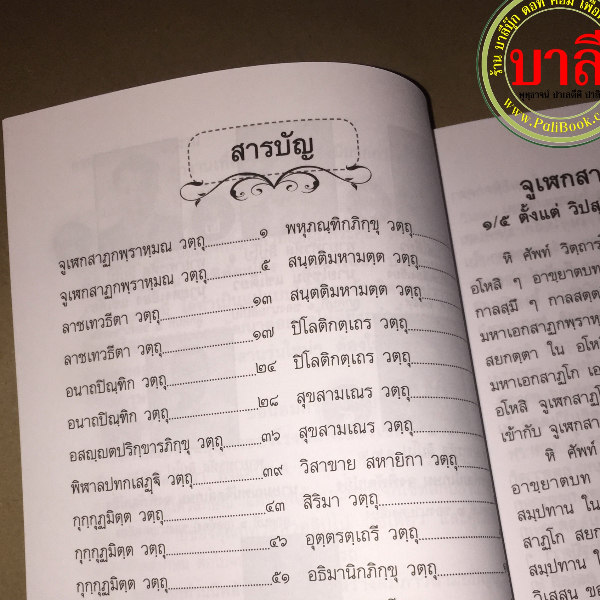 สารบัญ
จูเฬกสาฏกพฺราหฺมณ วตฺถุ....................๑
จูเฬกสาฏกพฺราหฺมณ วตฺถุ....................๕
ลาชเทวธีตา วตฺถุ....................๑๓
ลาชเทวธีตา วตฺถุ....................๑๗
อนาถปิณฺฑิก วตฺถุ....................๒๔
อนาถปิณฺฑิก วตฺถุ....................๒๘
อสญฺญตปริกฺขารภิกฺขุ วตฺถุ....................๓๖
พิฬาลปทกเสฏฺฐิ วตฺถุ....................๓๙
กุกฺกุฏมิตฺต วตฺถุ....................๔๓
กุกฺกุฏมิตฺต วตฺถุ....................๔๖
กุกฺกุฏมิตฺต วตฺถุ....................๕๑
พหุภณฺฑิกภิกฺขุ วตฺถุ
สนฺตติมหามตฺต วตฺถุ
สนฺตติมหามตฺต วตฺถุ
ปิโลติกตฺเถร วตฺถุ
ปิโลติกตฺเถร วตฺถุ
สุขสามเณร วตฺถุ
สุขสามเณร วตฺถุ
วิสาขาย สหายิกา วตฺถุ
สิริมา วตฺถุ
อุตฺตรตฺเถรี วตฺถุ
อธิมานิกภิกฺขุ วตฺถุ
จูเฬกสา
๑/๕ ตั้งแต่ วิปส
หิ ศัพท์ วิตฺถาร
อโหสิ ๆ อาขฺยาตบท
กาลสฺมึ ๆ กาลสตฺต
มหาเอกสาฏกพฺราห
สยกตฺตา ใน อโห
มหาเอกสาฏโก เอ
อโหสิ จูเฬกสาฏโ
เข้ากับ จูเฬกสา
หิ ศัพท์
อาขฺยาตบท
สมฺปทาน ใน
สาฏโก สยก
สมฺปทาน ใ
ร้าน บาลีบุ๊ก ดอท คอม เพื่อ
บาลี
www.PaliBook.c